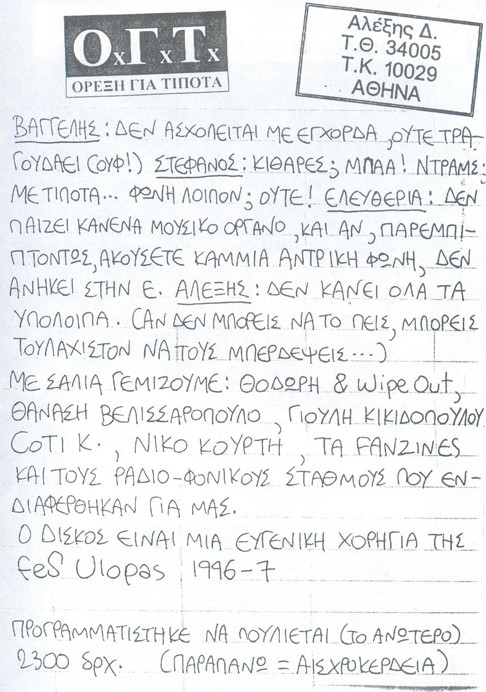 ΟχΓχΤχ
ΟΡΕΞΗ ΓΙΑ ΤΙΠΟΤΑ
Αλέξης Δ.
Τ.Θ. 34005
Τ.Κ. 10029
ΑΘΗΝΑ
ΒΑΓΓΕΛΗΣ: ΔΕΝ ΑΣΧΟΛΕΙΤΑΙ ΜΕ ΕΓΧΟΡΔΑ, ΟΥΤΕ ΤΡΑ-
ΓΟΥΔΑΕΙ (ΟΥΦ!) ΣΤΕΦΑΝΟΣ: ΚΙΘΑΡΕΣ; ΜΠΑΑ! ΝΤΡΑΜΣ;
ΜΕ ΤΙΠΟΤΑ... ΦΩΝΗ ΛΟΙΠΟΝ; ΟΥΤΕ! ΕΛΕΥΘΕΡΙΑ: ΔΕΝ
ΠΑΙΖΕΙ ΚΑΝΕΝΑ ΜΟΥΣΙΚΟ ΟΡΓΑΝΟ, ΚΑΙ ΑΝ, ΠΑΡΕΜΠΙ-
ΠΤΟΝΤΩΣ, ΑΚΟΥΣΕΤΕ ΚΑΜΜΙΑ ΑΝΤΡΙΚΗ ΦΩΝΗ, ΔΕΝ
ΑΝΗΚΕΙ ΣΤΗΝ Ε. ΑΛΕΞΗΣ: ΔΕΝ ΚΑΝΕΙ ΟΛΑ ΤΑ
ΥΠΟΛΟΙΠΑ. (ΑΝ ΔΕΝ ΜΠΟΡΕΙΣ ΝΑ ΤΟ ΠΕΙΣ, ΜΠΟΡΕΙΣ
ΤΟΥΛΑΧΙΣΤΟΝ ΝΑ ΤΟΥΣ ΜΠΕΡΔΕΨΕΙΣ...)
ΜΕ ΣΑΛΙΑ ΓΕΜΙΖΟΥΜΕ: ΘΟΔΩΡΗ & Wipe Out,
ΘΑΝΑΣΗ ΒΕΛΙΣΣΑΡΟΠΟΥΛΟ, ΓΙΟΥΛΗ ΚΙΚΙΔΟΠΟΥΛΟΥ
COTI K., ΝΙΚΟ ΚΟΥΡΤΗ, ΤΑ FANZINES
ΚΑΙ ΤΟΥΣ ΡΑΔΙΟ-ΦΩΝΙΚΟΥΣ ΣΤΑΘΜΟΥΣ ΠΟΥ ΕΝ-
ΔΙΑΦΕΡΘΗΚΑΝ ΓΙΑ ΜΑΣ.
Ο ΔΙΣΚΟΣ ΕΙΝΑΙ ΜΙΑ ΕΥΓΕΝΙΚΗ ΧΟΡΗΓΙΑ ΤΗΣ
FeS Ulopas 1996-7
ΠΡΟΓΡΑΜΜΑΤΙΣΤΗΚΕ ΝΑ ΠΟΥΛΙΕΤΑΙ (ΤΟ ΑΝΩΤΕΡΟ)
2300 δρχ. (ΠΑΡΑΠΑΝΩ = ΑΙΣΧΡΟΚΕΡΔΕΙΑ)